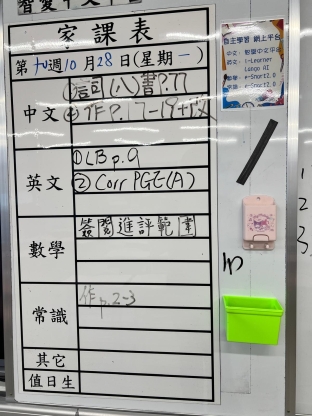 智愛中文平台
家課表
第九週10月28日(星期一)
中文
①詞(八)書P.77
②作P.17-19+改
英文
①LB p.9
②Corr PGE(A)
數學
簽閱進評範圍
常識
作p.2-3
其它
值日生
自主學習 網上平台
中文: 智愛中文平台
英文: i-Learner
Lango AI
數學: e-Smart2.0
常識: e-Smart2.0
1p
2
3,